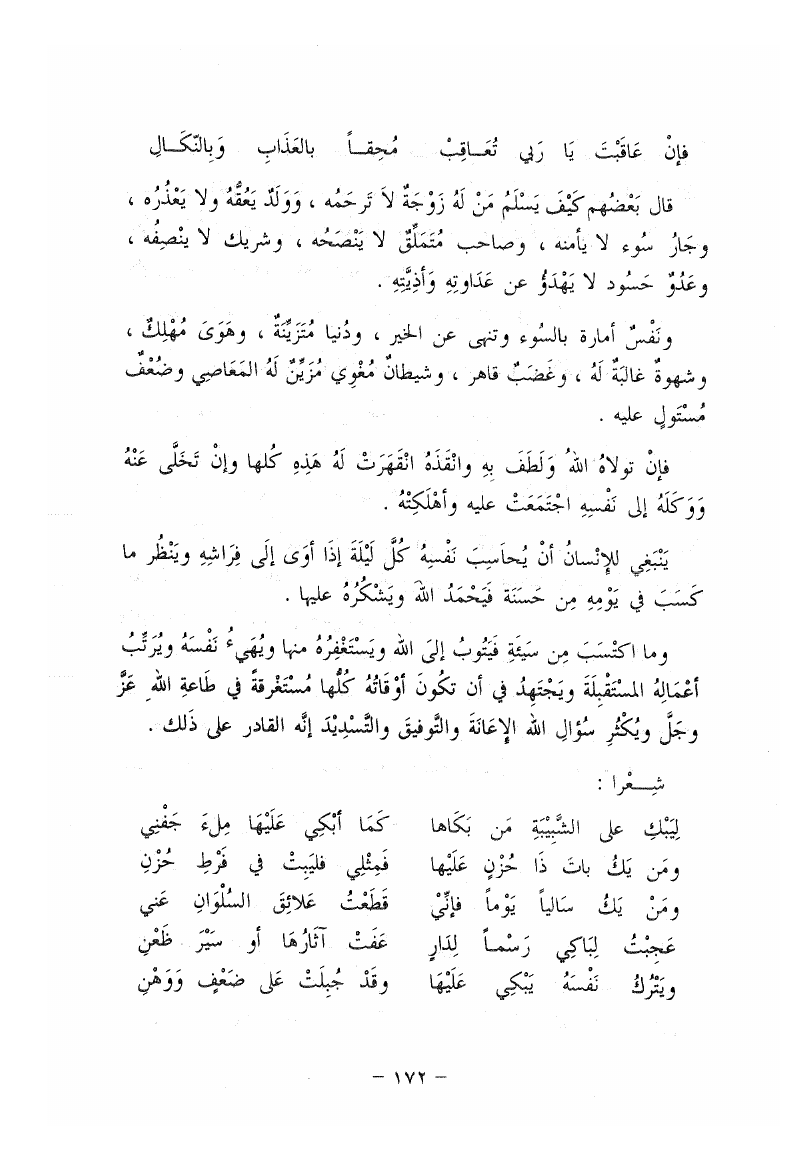 فإنْ عَاقَبْتَ يَا رَبي تُعَـاقِبْ مُحِقـاً بالعَذَابِ وَبِالنَّكَـالِ
قال بَعْضُهم كَيْفَ يَسْلَمُ مَنْ لَهُ زَوْجَةٌ لاَ تَرحَمُه ، وَوَلَدٌ يَعُقُّهُ ولا يَعْذُره ،
وجَارُ سُوء لا يأمنه ، وصاحب مُتَمَلِّقٌ لا يَنْصَحُه ، وشريك لا ينْصِفُه ،
وعَدُوٌ حَسُود لا يَهْدَؤُ عن عَدَاوتِهِ وَأذِيَّتِهِ .
ونَفْسٌ أمارة بالسُوء وتنهى عن الخير ، ودُنيا مُتَزَيِّنَةٌ ، وهَوَىَ مُهْلِكٌ ،
وشهوةٌ غالبَةٌ لَهُ ، وغَضَبٌ قاهر ، وشيطانٌ مُغْوِي مُزَيِّنٌ لَهُ المَعَاصِي وضُعْفٌ
مُسْتَولٍ عليه .
فإنْ تولاهُ اللهُ وَلَطَفَ بِهِ وانْقَذَهُ انْقَهَرَتْ لَهُ هَذِهِ كُلها وإنْ تَخَلَّى عَنْهُ
وَوَكَلَهُ إلى نَفْسِهِ اجْتَمَعَتْ عليه وأهْلَكِتْهُ .
يَنْبَغِي للإنْسانُ أنْ يُحاَسِبَ نَفْسِهُ كُلَّ لَيْلَة إذَا أوَى إلَى فِرَاشِهِ ويَنْظُر ما
كَسَبَ في يَوْمِه مِن حَسَنَة فَيَحْمَدُ اللهَ ويَشْكُرُهُ عليها .
وما اكتْسَبَ مِن سَيئَةِ فَيَتُوبُ إلىَ الله ويَسْتَغْفِرُهُ منها ويُهَيءُ نَفْسَهُ ويُرَتِّبُ
أعْمَالِهُ المسْتَقْبِلَةَ ويَجْتَهِدُ في أن تكُونَ أوْقَاتُهُ كُلُّها مُسْتَغْرِقةً في طَاعةِ اللهِ عَزَّ
وجَلَّ ويُكْثُرِ سُؤالِ الله الإعَانَةَ والتَّوفيقَ والتَّسْدِيْدَ إنَّه القادر على ذَلك .
شِـعْرا :
لِيَبْكِ على الشَّبِيْبَةِ مَن بَكَاها كَمَا أبْكِي عَلَيْهَا مِلءَ جَفْنِي
ومَن يَكُ باتَ ذَا حُزْنٍ عَلَيْها فَمِثْلِي فليَبِتْ في فَرْطِ حُزْنِ
ومَنْ يَكُ سَالياً يَوْماً فإنِّيْ قَطَعْتُ عَلائِقَ السُلْوَانِ عَني
عَجِبْتُ لِبَاكِي رَسْمـاً لِدَارٍ عَفَتْ آثَارُهَا أو سَيْرَ ظَعْنِ
ويَتْرُكُ نَفْسَهُ يَبْكِي عَلَيْهَا وقَدْ جُبِلَتْ عَلى ضَعْفٍ وَوَهْنِ
– ١٧٢ –